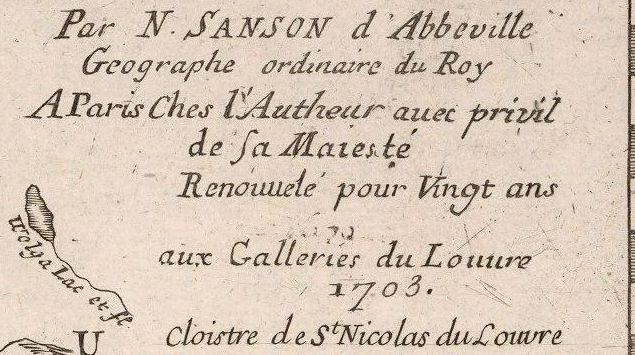 Par N. SANSON d'Abbeville
Geographe ordinaire du Roy
A Paris Ches l'Autheur auec privil
de sa Maiesté
Renouuelé pour Vingt ans
aux Galleries du Louure
1703.
Wolga Lac et fl
U Cloistre de St Nicolas du Louvre